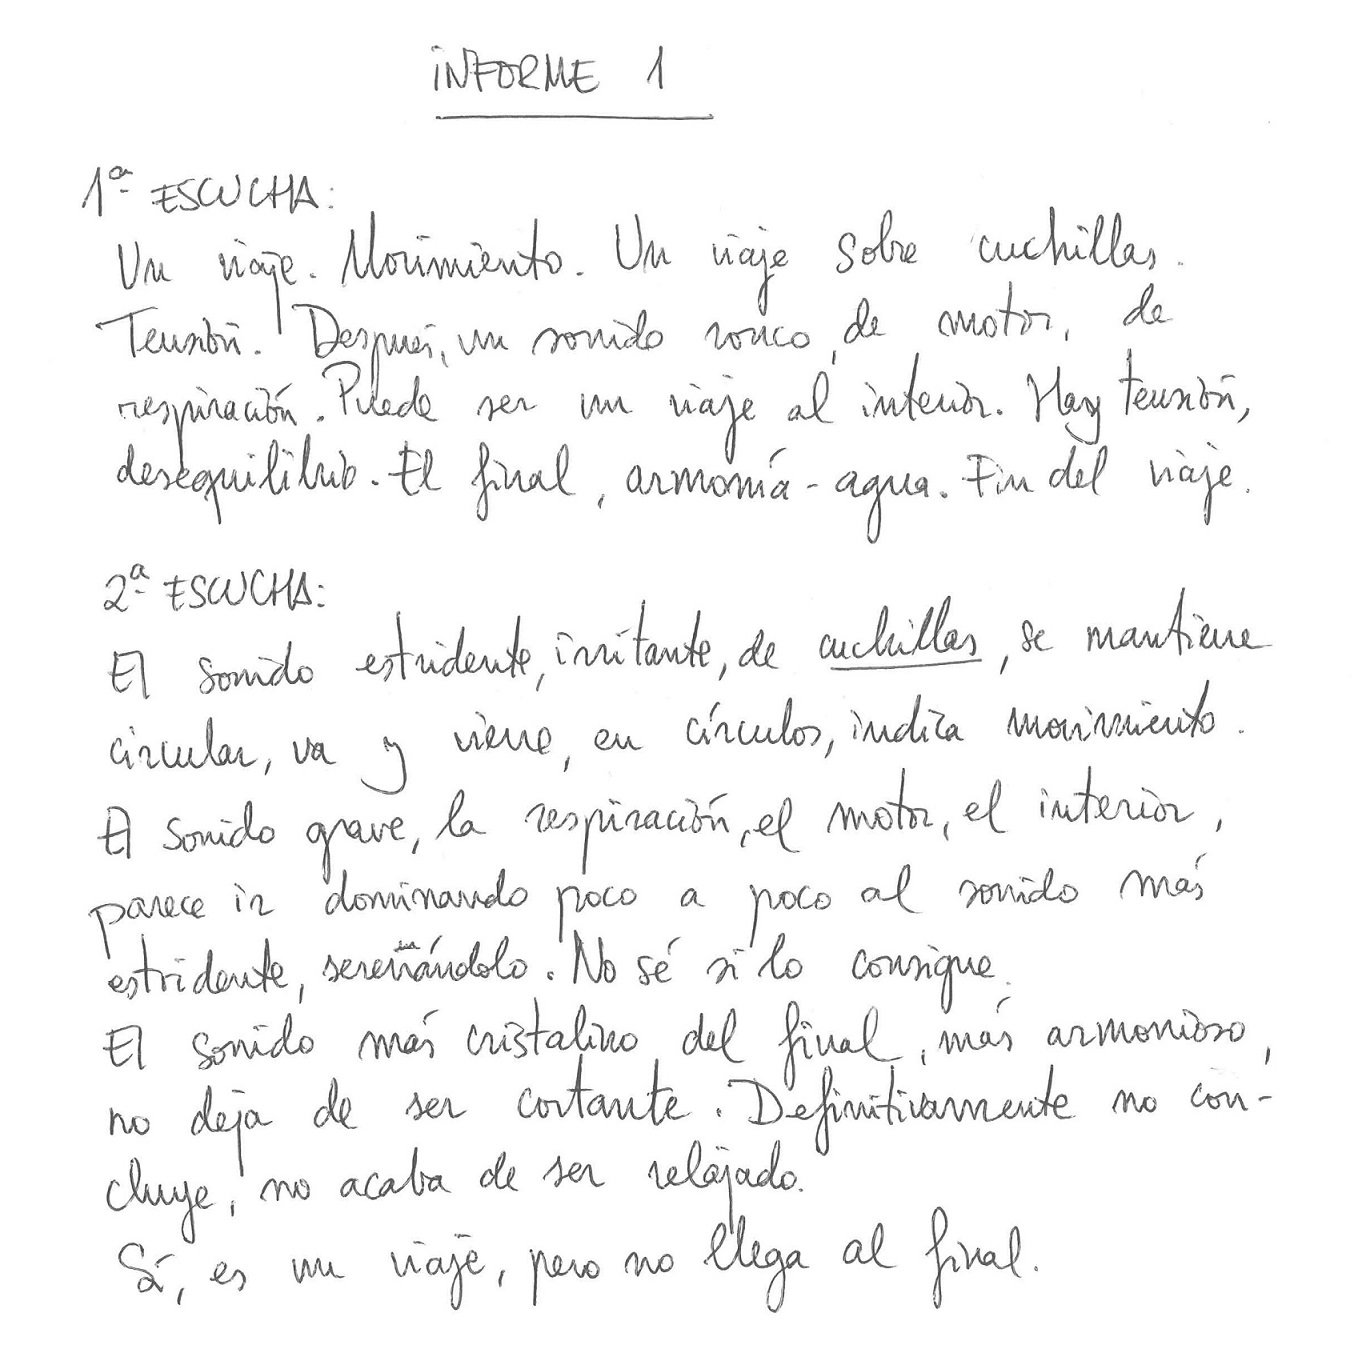 INFORME 1
1ª ESCUCHA:
Un viaje. Movimiento. Un viaje sobre cuchillas.
Tensión. Después, un sonido ronco, de motor, de
respiración. Puede ser un viaje al interior. Hay tensión,
desequilibrio. El final, armonía - agua. Fin del viaje.
2ª ESCUCHA:
El sonido estridente, irritante, de cuchillas, se mantiene
circular, va y viene, en círculos, indica movimiento.
El sonido grave, la respiración, el motor, el interior,
parece ir dominando poco a poco al sonido más
estridente, serenándolo. No sé si lo consigue.
El sonido más cristalino del final, más armonioso,
no deja de ser cortante. Definitivamente no con-
cluye, no acaba de ser relajado.
Sí, es un viaje, pero no llega al final.